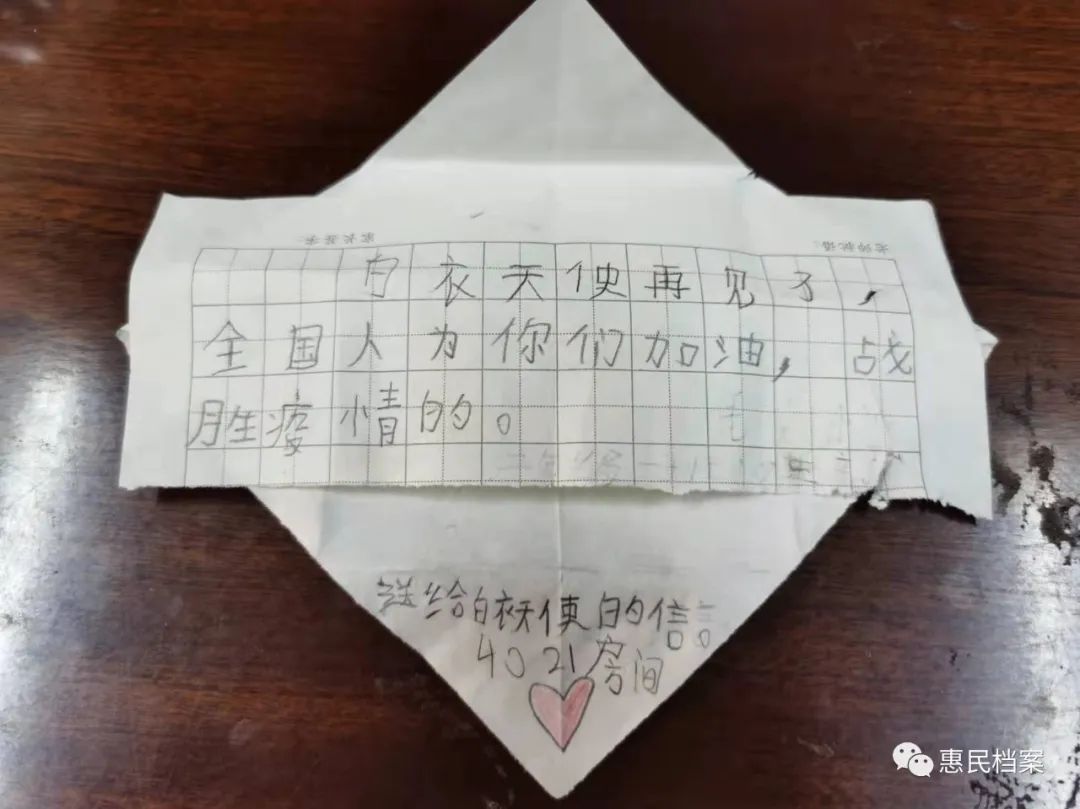 白衣天使再见了，
全国人为你们加油，战
胜疫情的。
送给白衣天使的信
4021房间
惠民档案